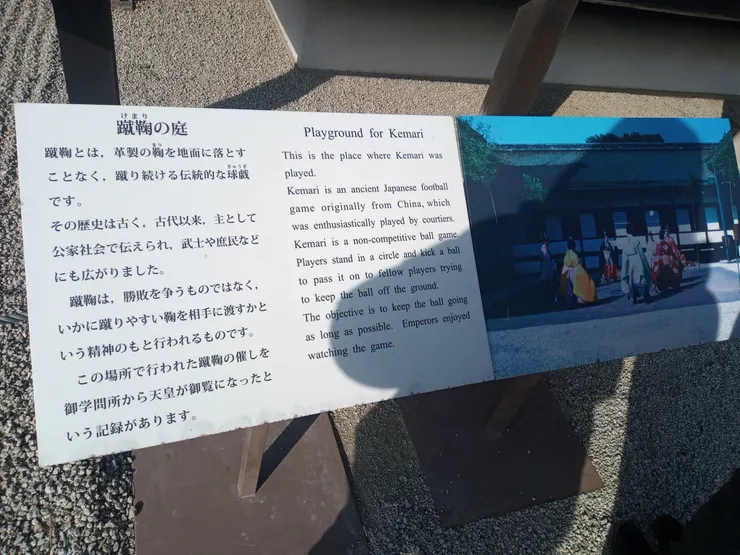 けまり
蹴鞠の庭
まり
きゅうぎ
蹴鞠とは，革製の鞠を地面に落とす
ことなく，蹴り続ける伝統的な球戯
です。
その歴史は古く，古代以来，主として
公家社会で伝えられ，武士や庶民など
にも広がりました。
蹴鞠は，勝敗を争うものではなく，
いかに蹴りやすい鞠を相手に渡すかと
いう精神のもと行われるものです。
この場所で行われた蹴鞠の催しを
御学問所から天皇が御覧になったと
いう記録があります。
Playground for Kemari
This is the place where Kemari was
played.
Kemari is an ancient Japanese football
game originally from China, which
was enthusiastically played by courtiers.
Kemari is a non-competitive ball game.
Players stand in a circle and kick a ball
to pass it on to fellow players trying
to keep the ball off the ground.
The objective is to keep the ball going
as long as possible. Emperors enjoyed
watching the game.